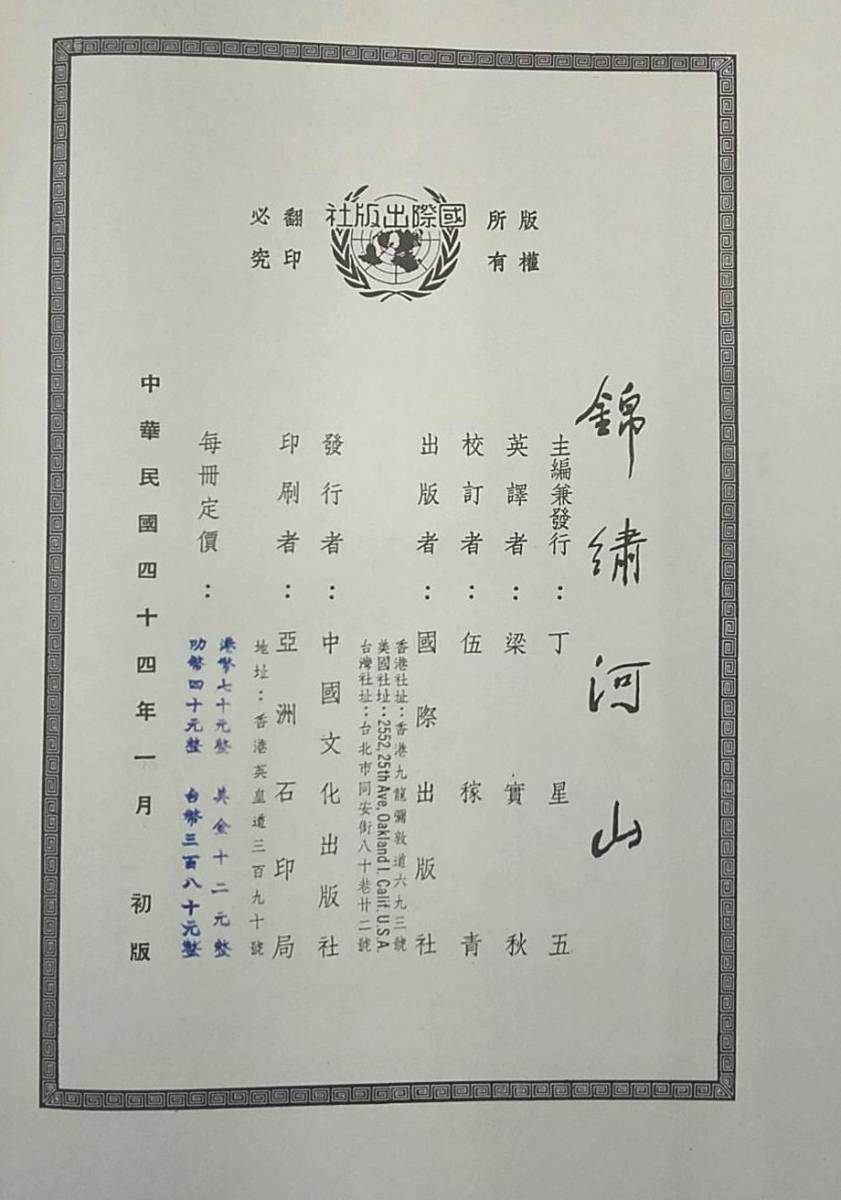 版權
所有
國際出版社
翻印
必究
錦繡河山
主編兼發行：丁星五
英譯者：梁實秋
校訂者：伍稼青
出版者：國際出版社
香港社址：香港九龍彌敦道六九三號
美國社址：2552, 25th Ave, Oakland 1. Calif. U.S.A.
台灣社址：台北市同安街八十巷廿二號
發行者：中國文化出版社
印刷者：亞洲石印局
地址：香港英皇道三百九十號
每冊定價：
港幣七十元整 美金十二元整
叻幣四十元整 台幣三百八十元整
中華民國四十四年一月 初版